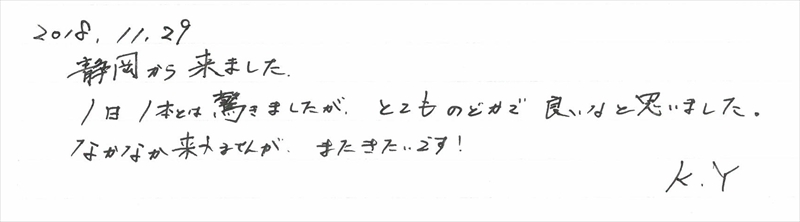 2018.11.29
静岡から来ました.
1日1本とは驚きましたが、とてものどかで良いなと思いました。
なかなか来れませんが、またきたいです!
K.Y